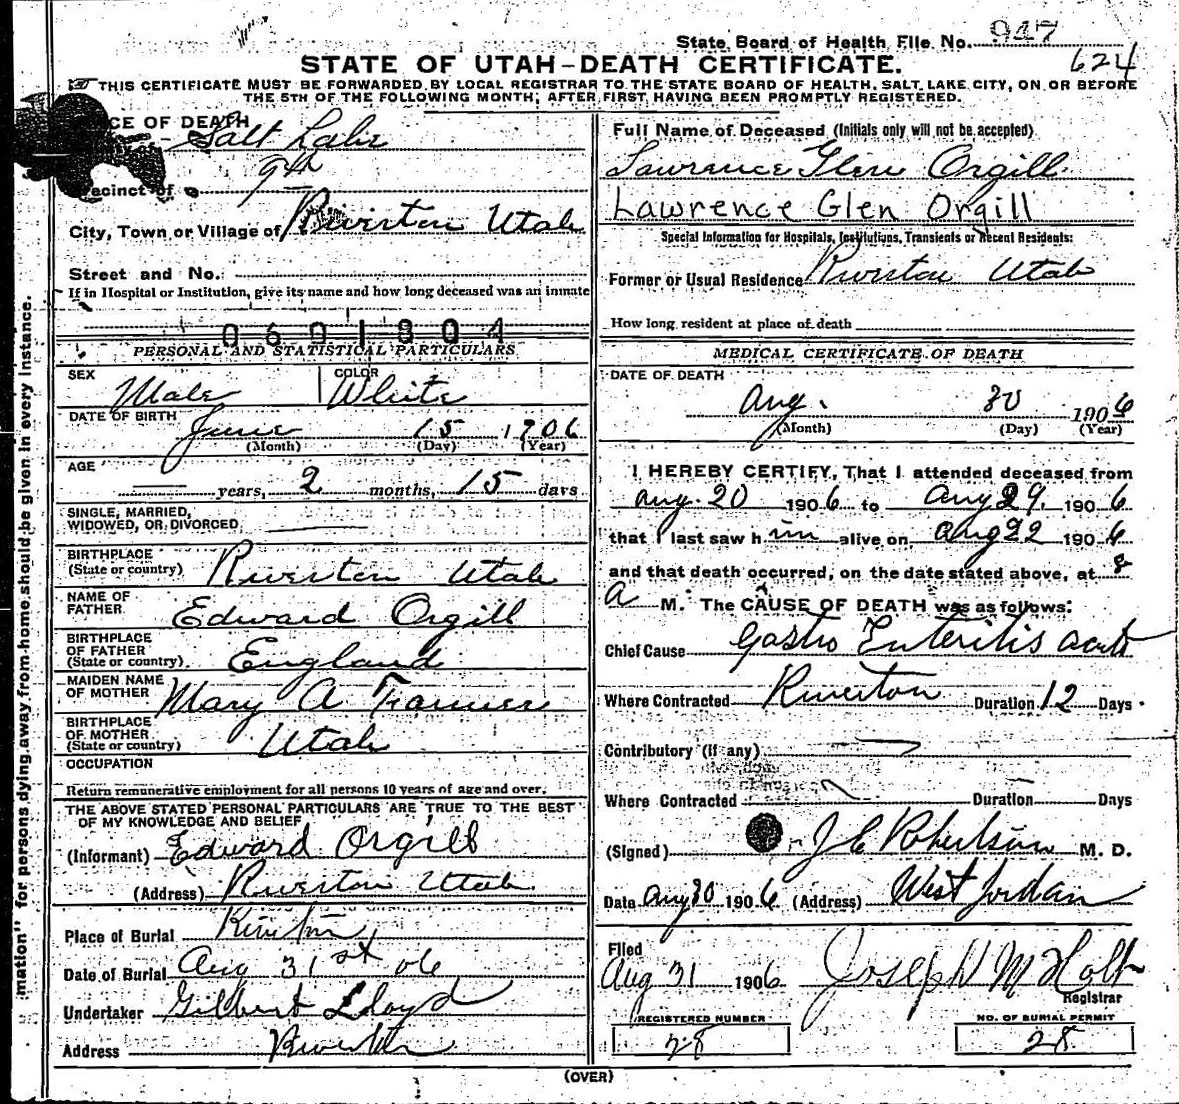 State Board of Health File No. 947
624
STATE OF UTAH—DEATH CERTIFICATE.
THIS CERTIFICATE MUST BE FORWARDED BY LOCAL REGISTRAR TO THE STATE BOARD OF HEALTH, SALT LAKE CITY, ON OR BEFORE
THE 5TH OF THE FOLLOWING MONTH; AFTER FIRST HAVING BEEN PROMPTLY REGISTERED.
CE OF DEATH
of Salt Lake
Precinct of 9th
City, Town or Village of Riverton Utah
Street and No.
If in Hospital or Institution, give its name and how long deceased was an inmate
0601804
PERSONAL AND STATISTICAL PARTICULARS
SEX Male COLOR White
DATE OF BIRTH June 15 1906
(Month) (Day) (Year)
AGE — years, 2 months, 15 days
SINGLE, MARRIED,
WIDOWED, OR DIVORCED —
BIRTHPLACE
(State or country) Riverton Utah
NAME OF
FATHER Edward Orgill
BIRTHPLACE
OF FATHER
(State or country) England
MAIDEN NAME
OF MOTHER Mary A Farmer
BIRTHPLACE
OF MOTHER
(State or country) Utah
OCCUPATION
Return remunerative employment for all persons 10 years of age and over.
THE ABOVE STATED PERSONAL PARTICULARS ARE TRUE TO THE BEST
OF MY KNOWLEDGE AND BELIEF
(Informant) Edward Orgill
(Address) Riverton Utah
Place of Burial Riverton
Date of Burial Aug 31st 06
Undertaker Gilbert Lloyd
Address Riverton
Full Name of Deceased (Initials only will not be accepted)
Lawrence Glen Orgill
Lawrence Glen Orgill
Special Information for Hospitals, Institutions, Transients or Recent Residents:
Former or Usual Residence Riverton Utah
How long resident at place of death
MEDICAL CERTIFICATE OF DEATH
DATE OF DEATH
Aug. 30 1906
(Month) (Day) (Year)
I HEREBY CERTIFY, That I attended deceased from
Aug. 20 1906 to Aug 29. 1906
that I last saw him alive on Aug 22 1906
and that death occurred, on the date stated above, at 8
a M. The CAUSE OF DEATH was as follows:
Chief Cause Gastro Enteritis acute
Where Contracted Riverton Duration 12 Days.
Contributory (if any) —
Where Contracted Duration — Days
(Signed) J C Robertson M. D.
Date Aug 30 1906 (Address) West Jordan
Filed
Aug 31 1906 Joseph M Holt
Registrar
REGISTERED NUMBER NO. OF BURIAL PERMIT
28 28
(OVER)
mation" for persons dying away from home should be given in every instance.